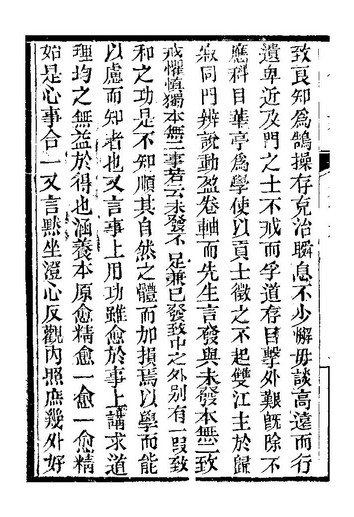 致良知爲鵠操存克治瞬息不少懈毋談高遠而行
遺卑近及門之士不戒而孚道存目擊外艱旣除不
應科目華亭爲學使以貢士徵之不起雙江主於歸
寂同門辨說動盈卷軸而先生言發與未發本無二致
戒懼愼獨本無二事若云未發不足兼已發致中之外別有一段致
和之功是不知順其自然之體而加損焉以學而能
以慮而知者也又言事上用功雖愈於事上講求道
理均之無益於得也涵養本原愈精愈一愈一愈精
始是心事合一又言黙坐澄心反觀內照庶幾外好